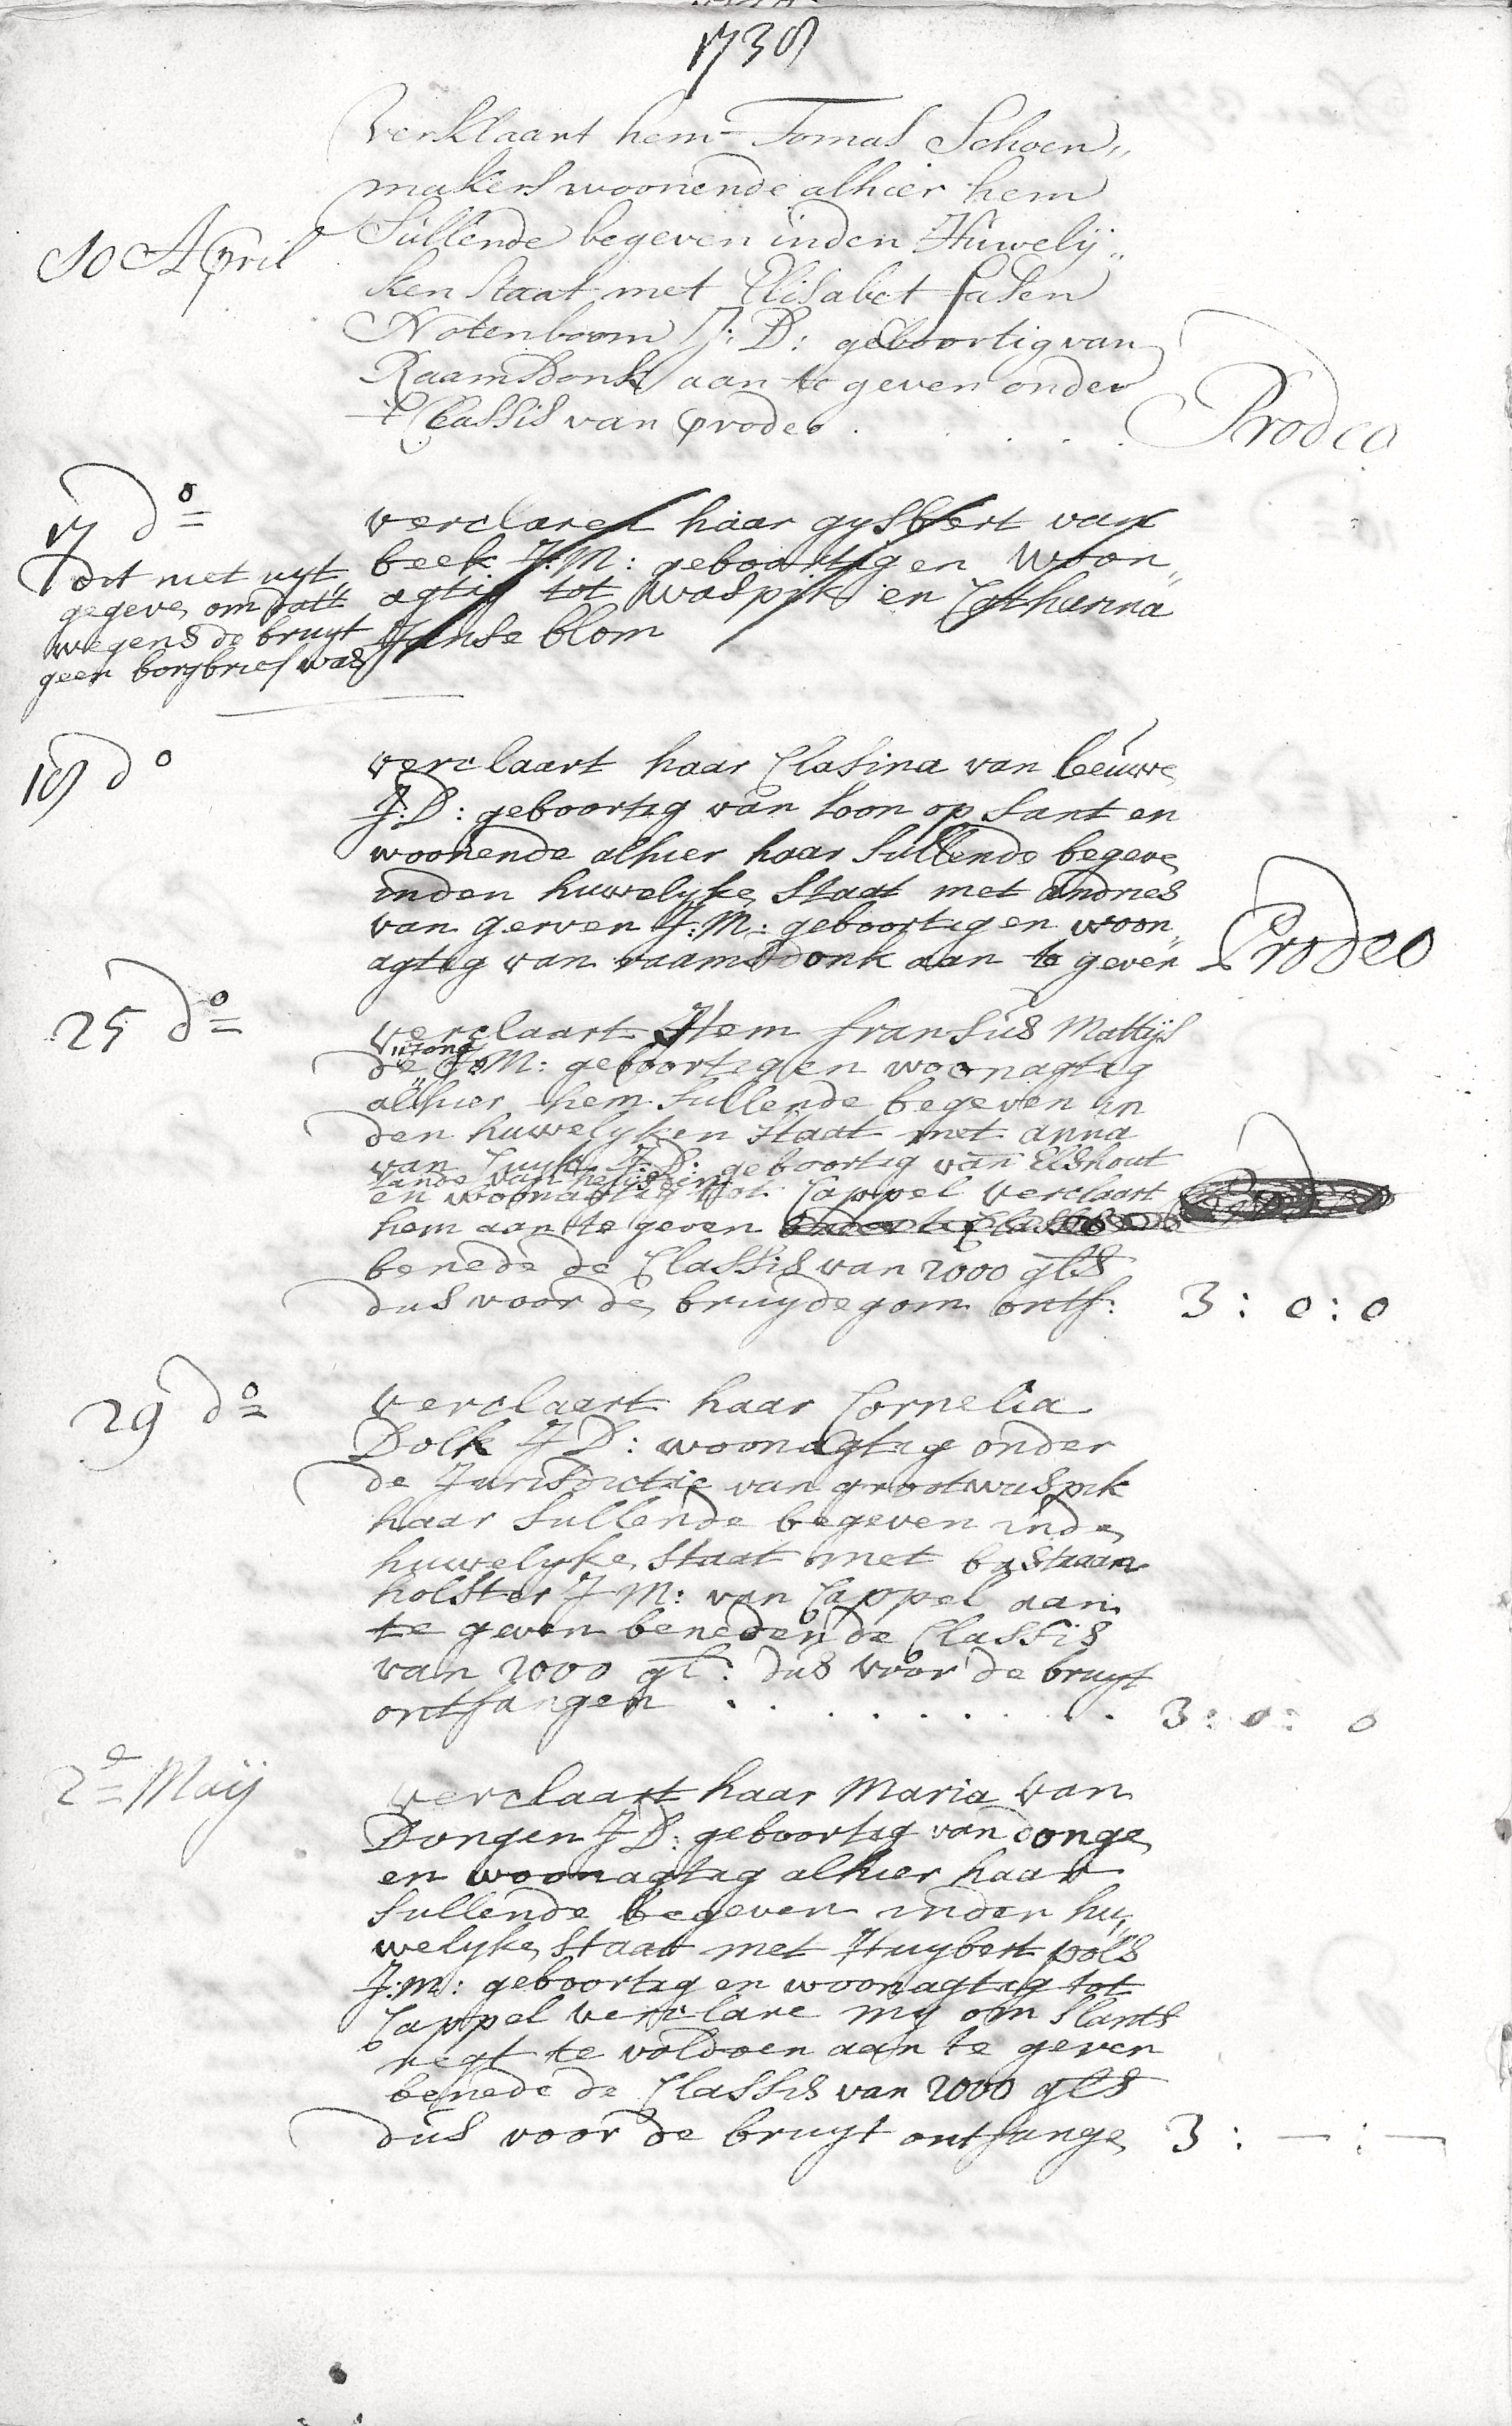 1738
10 April
Verklaart hem Tomas Schoen„
makers woonende alhier hem
Sullende begeven inden Huwelij„
ken Staat met Elisabet
Notenboom J: D: geboortig van
Raamsdonk aan te geven onder
't Classis van prodeo . . . . . Prodeo
17 do
dit niet uyt
gegeve, om datt
wegens de bruyt
geen borgbrief was
verclaren haar gysbert van
beek J:M: geboortig en woon„
agtig tot waspyk en Cathurina
Janse blom
19 do
verclaart haar Clasina van leeuwe,
J:D: geboortig van loon op sant en
woonende alhier haar sullende begeve,
inden huwelyke, staat met andries
van gerven J:M: geboortig en woon„
agtig van raamsdonk aan te geven Prodeo
25 do
verclaart Hem fransus Mattijs
de Jong J:M: geboortig en woonagtig
alhier hem sullende begeven in
den huwelyken staat met anna
van Cuyk J:D: geboortig van Elshout
lande van heusden
en woonagtig tot Cappel verclaart
hem aan te geven onder de Classis Prodeo
benede de Classis van 2000 gls
dus voor de bruydegom ontf: 3 : 0 : 0
29 do
verclaart haar Cornelia
Dolk J D: woonagtig onder
de Jurisdictie van grootwaspik
haar sullende begeven inde,
huwelyke, staat met bastiaan
holster J M: van Cappel aan
te geven beneden de Classis
van 2000 gl: dus voor de bruyt
ontfangen . . . . . . . . 3 : 0 : 0
2e Maij
verclaart haar Maria van
Dongen J D: geboortig van donge,
en woonagtig alhier haar
sullende begeven inden hu„
welyke, staat met Huybert pols
J:M: geboortig en woonagtig tot
Cappel verclare my om slants
regt te voldoen aan te geven
benede de Classis van 2000 gls
dus voor de bruyt ontfange, 3 : — : —